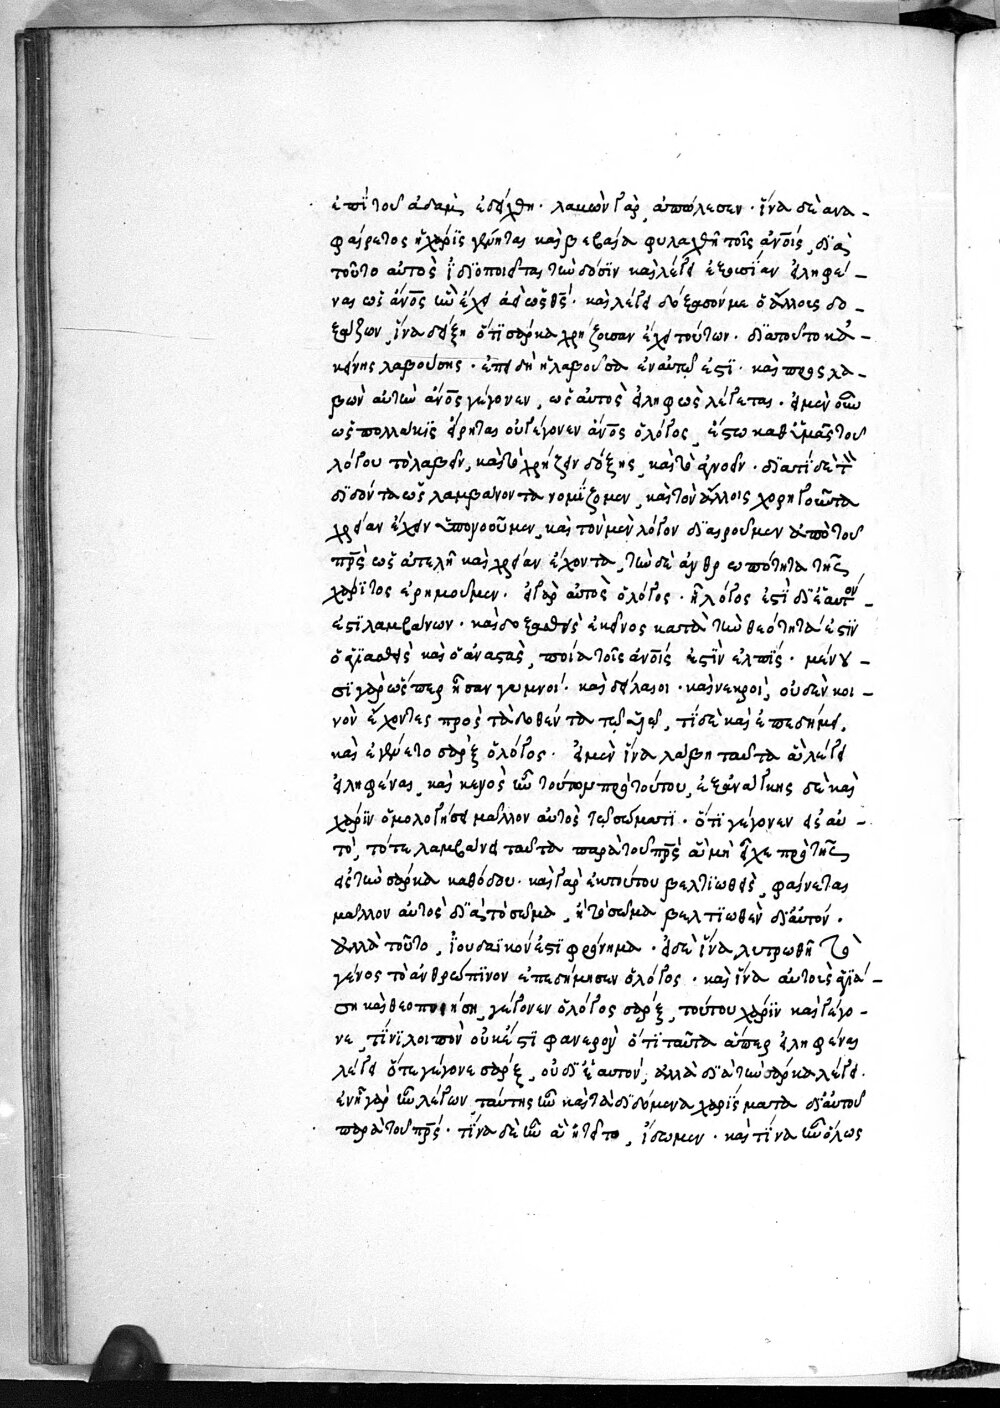 ἐπὶ τοῦ ἀδὰμ ἐδείχθη· λαβὼν γὰρ, ἀπώλεσεν· ἵνα δὲ ἀνα-
φαίρετος ἡ χάρις γένηται καὶ βεβαία φυλαχθῇ τοῖς ἀνοις, διὰ
τοῦτο αὐτὸς ἰδιοποιεῖται τὴν δόσιν καὶ λέγει ἐξουσίαν εἰληφέ-
ναι ὡς ἀνος ἣν εἶχε ἀεὶ ὡς θς· καὶ λέγει δόξασόν με ὁ ἄλλους δο-
ξάζων, ἵνα δείξη ὅτι σάρκα χρήζουσαν εἶχε τούτων· διὰ τοῦτο κἀ-
κείνης λαβούσης· ἐπειδὴ ἡ λαβοῦσα ἐν αὐτῷ ἐστι· καὶ προσλα-
βὼν αὐτὴν ἀνος γέγονεν, ὡς αὐτὸς εἰληφὼς λέγεται. εἰ μὲν οὖν
ὡς πολλάκις εἴρηται οὐ γέγονεν ἀνος ὁ λόγος, ἔστω καθ' ὑμᾶς τοῦ
λόγου τὸ λαβεῖν, καὶ τὸ χρήζειν δόξης, καὶ τὸ ἀγνοεῖν· διατί δὲ τὸν
διδόντα ὡς λαμβάνοντα νομίζομεν, καὶ τὸν ἄλλοις χορηγοῦντα
χρείαν ἔχειν ὑπονοοῦμεν, καὶ τὸν μὲν λόγον διαιροῦμεν ἀπὸ τοῦ
πρς ὡς ἀτελῆ καὶ χρείαν ἔχοντα, τὴν δὲ ἀνθρωπότητα τῆς
χάριτος ἐρημοῦμεν· εἰ γὰρ αὐτὸς ὁ λόγος· ἧ λόγος ἐστὶ δι' ἑαυτὸν -
ἐστι λαμβάνων· καὶ δοξασθεὶς ἐκεῖνος κατὰ τὴν θεότητά ἐστιν
ὁ ἁγιασθεὶς καὶ ὁ ἀναστὰς, ποία τοῖς ἀνοις ἐστὶν ἐλπίς· μένου-
σι γὰρ ὥσπερ ἦσαν γυμνοί· καὶ δείλαιοι· καὶ νεκροὶ, οὐδὲν κοι-
νὸν ἔχοντες πρὸς τὰ δοθέντα τῷ υἱῷ, τί δὲ καὶ ἐπεδήμει,
καὶ ἐγένετο σὰρξ ὁ λόγος· εἰ μὲν ἵνα λάβη ταῦτα ἃ λέγει
εἰληφέναι, καὶ κενὸς ἦν τούτων πρὸ τούτου, ἐξ ἀνάγκης δὲ καὶ
χάριν ὁμολογήσει μᾶλλον αὐτὸς τῷ σώματι· ὅτι γέγονεν εἰς αὐ-
τὸ, τότε λαμβάνει ταῦτα παρὰ τοῦ πρς ἃ μὴ εἶχε πρὸ τῆς
εἰς τὴν σάρκα καθόδου· καὶ γὰρ ἐκ τούτου βελτιωθεὶς, φαίνεται
μᾶλλον αὐτὸς διὰ τὸ σῶμα, ἢ τὸ σῶμα βελτιωθὲν δι' αὐτόν·
ἀλλὰ τοῦτο, ἰουδαϊκόν ἐστι φρόνημα· εἰ δὲ ἵνα λυτρωθῆ τὸ
γένος τὸ ἀνθρώπινον ἐπεδήμησεν ὁ λόγος· καὶ ἵνα αὐτοὺς ἁγιά-
ση καὶ θεοποιήση, γέγονεν ὁ λόγος σάρξ, τούτου χάριν καὶ γέγο-
νε, τίνι λοιπὸν οὐκ ἔστι φανερὸν ὅτι ταῦτα ἅπερ εἰληφέναι
λέγει ὅτε γέγονε σάρξ, οὐ δι' ἑαυτόν, ἀλλὰ διὰ τὴν σάρκα λέγει·
ἐν ἧ γὰρ ἦν λέγων, ταύτης ἦν καὶ τὰ διδόμενα χαρίσματα δι' αὐτοῦ
παρὰ τοῦ πρς· τίνα δὲ ἦν ἃ ἤτει το, ἴδωμεν· καὶ τίνα ἦν ὅλως